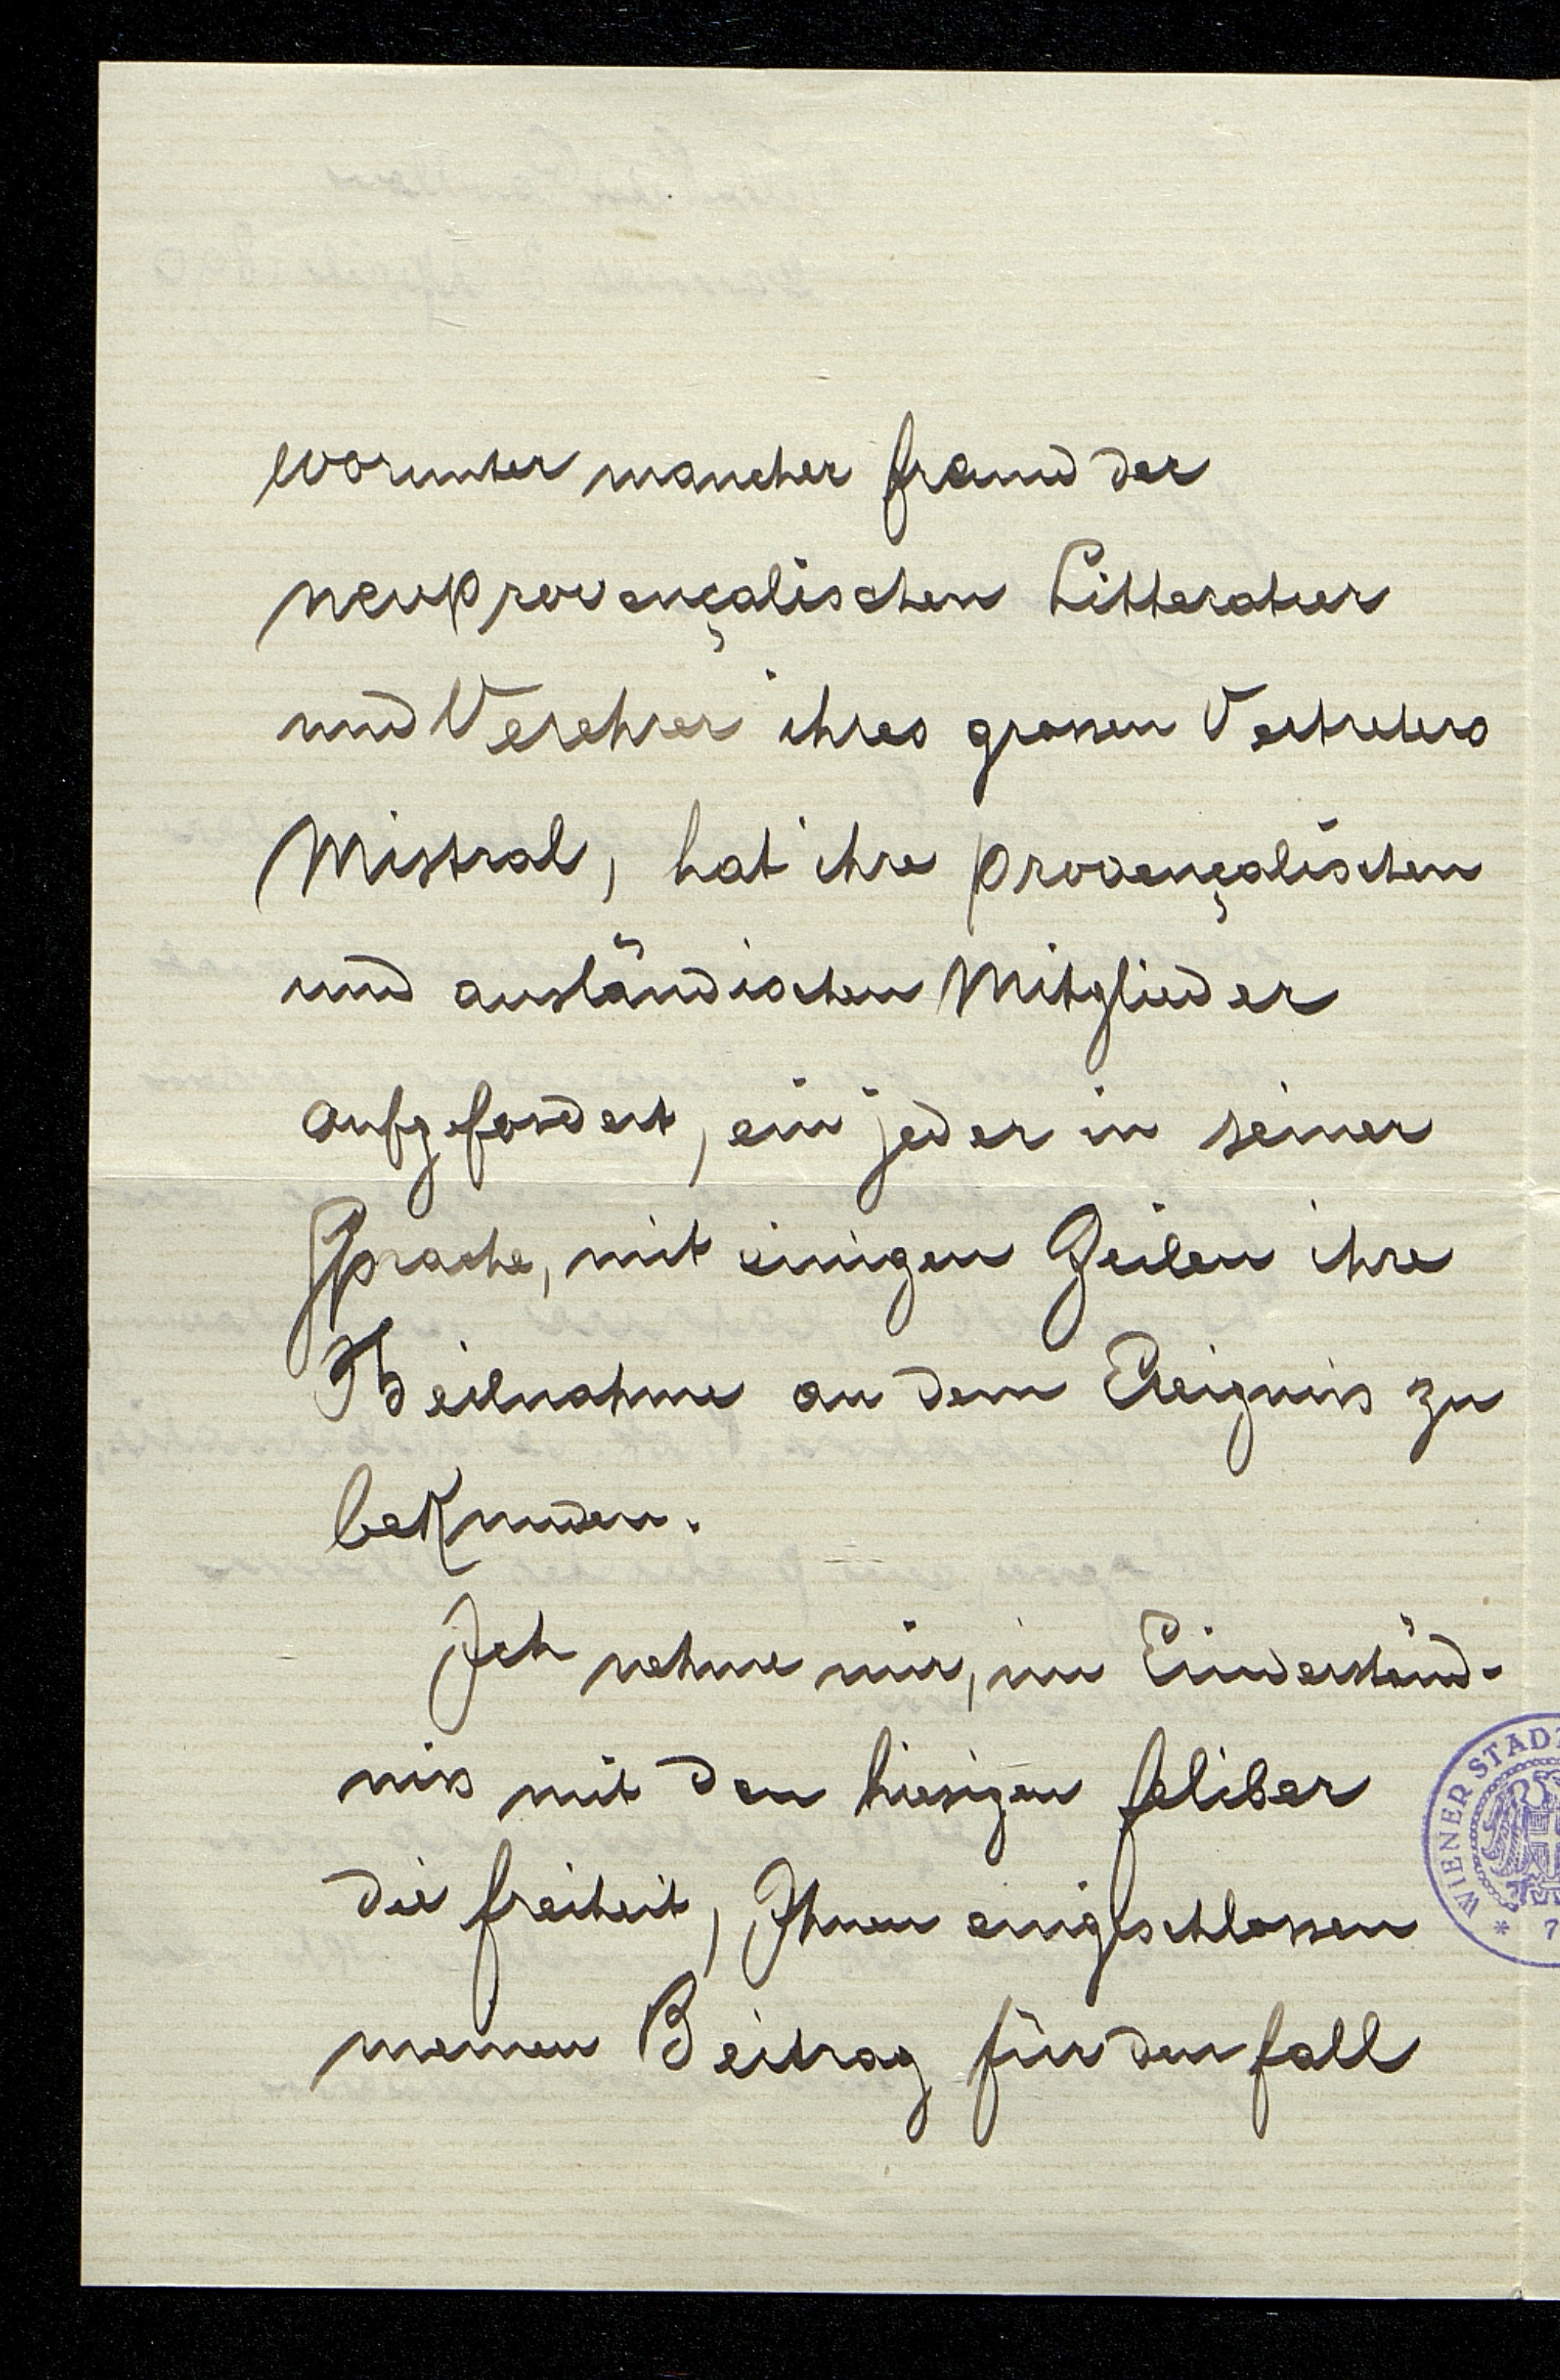 worunter mancher Freund der
neuprovençalischen Litteratur
und Verehrer ihres grossen Vertreters
Mistral, hat ihre provençalischen
und ausländischen Mitglieder
aufgefordert, ein jeder in seiner
Sprache, mit einigen Zeilen ihre
Theilnahme an dem Ereignis zu
bekunden.
Ich nehme mir, im Einverständ-
nis mit den hiesigen Feliber
die Freiheit, Ihnen eingeschlossen
meinen Beitrag für den Fall
WIENER STADT
* 7